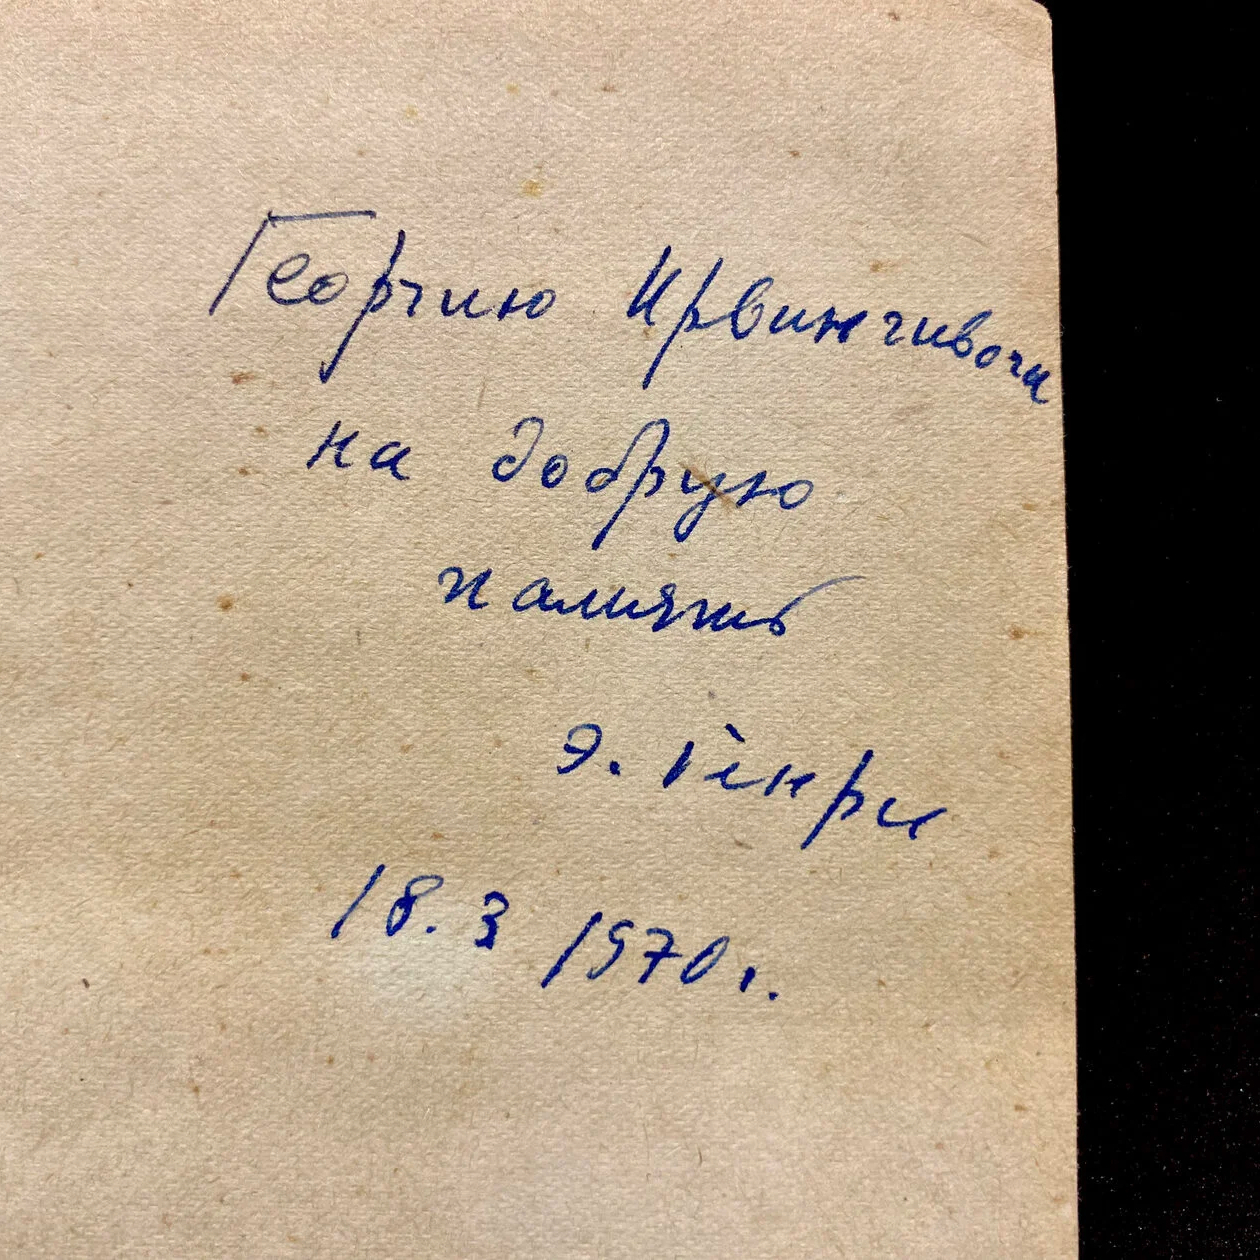 Георгию Ирвинговичу
на добрую
память
Э. Генри
18.3 1970г.